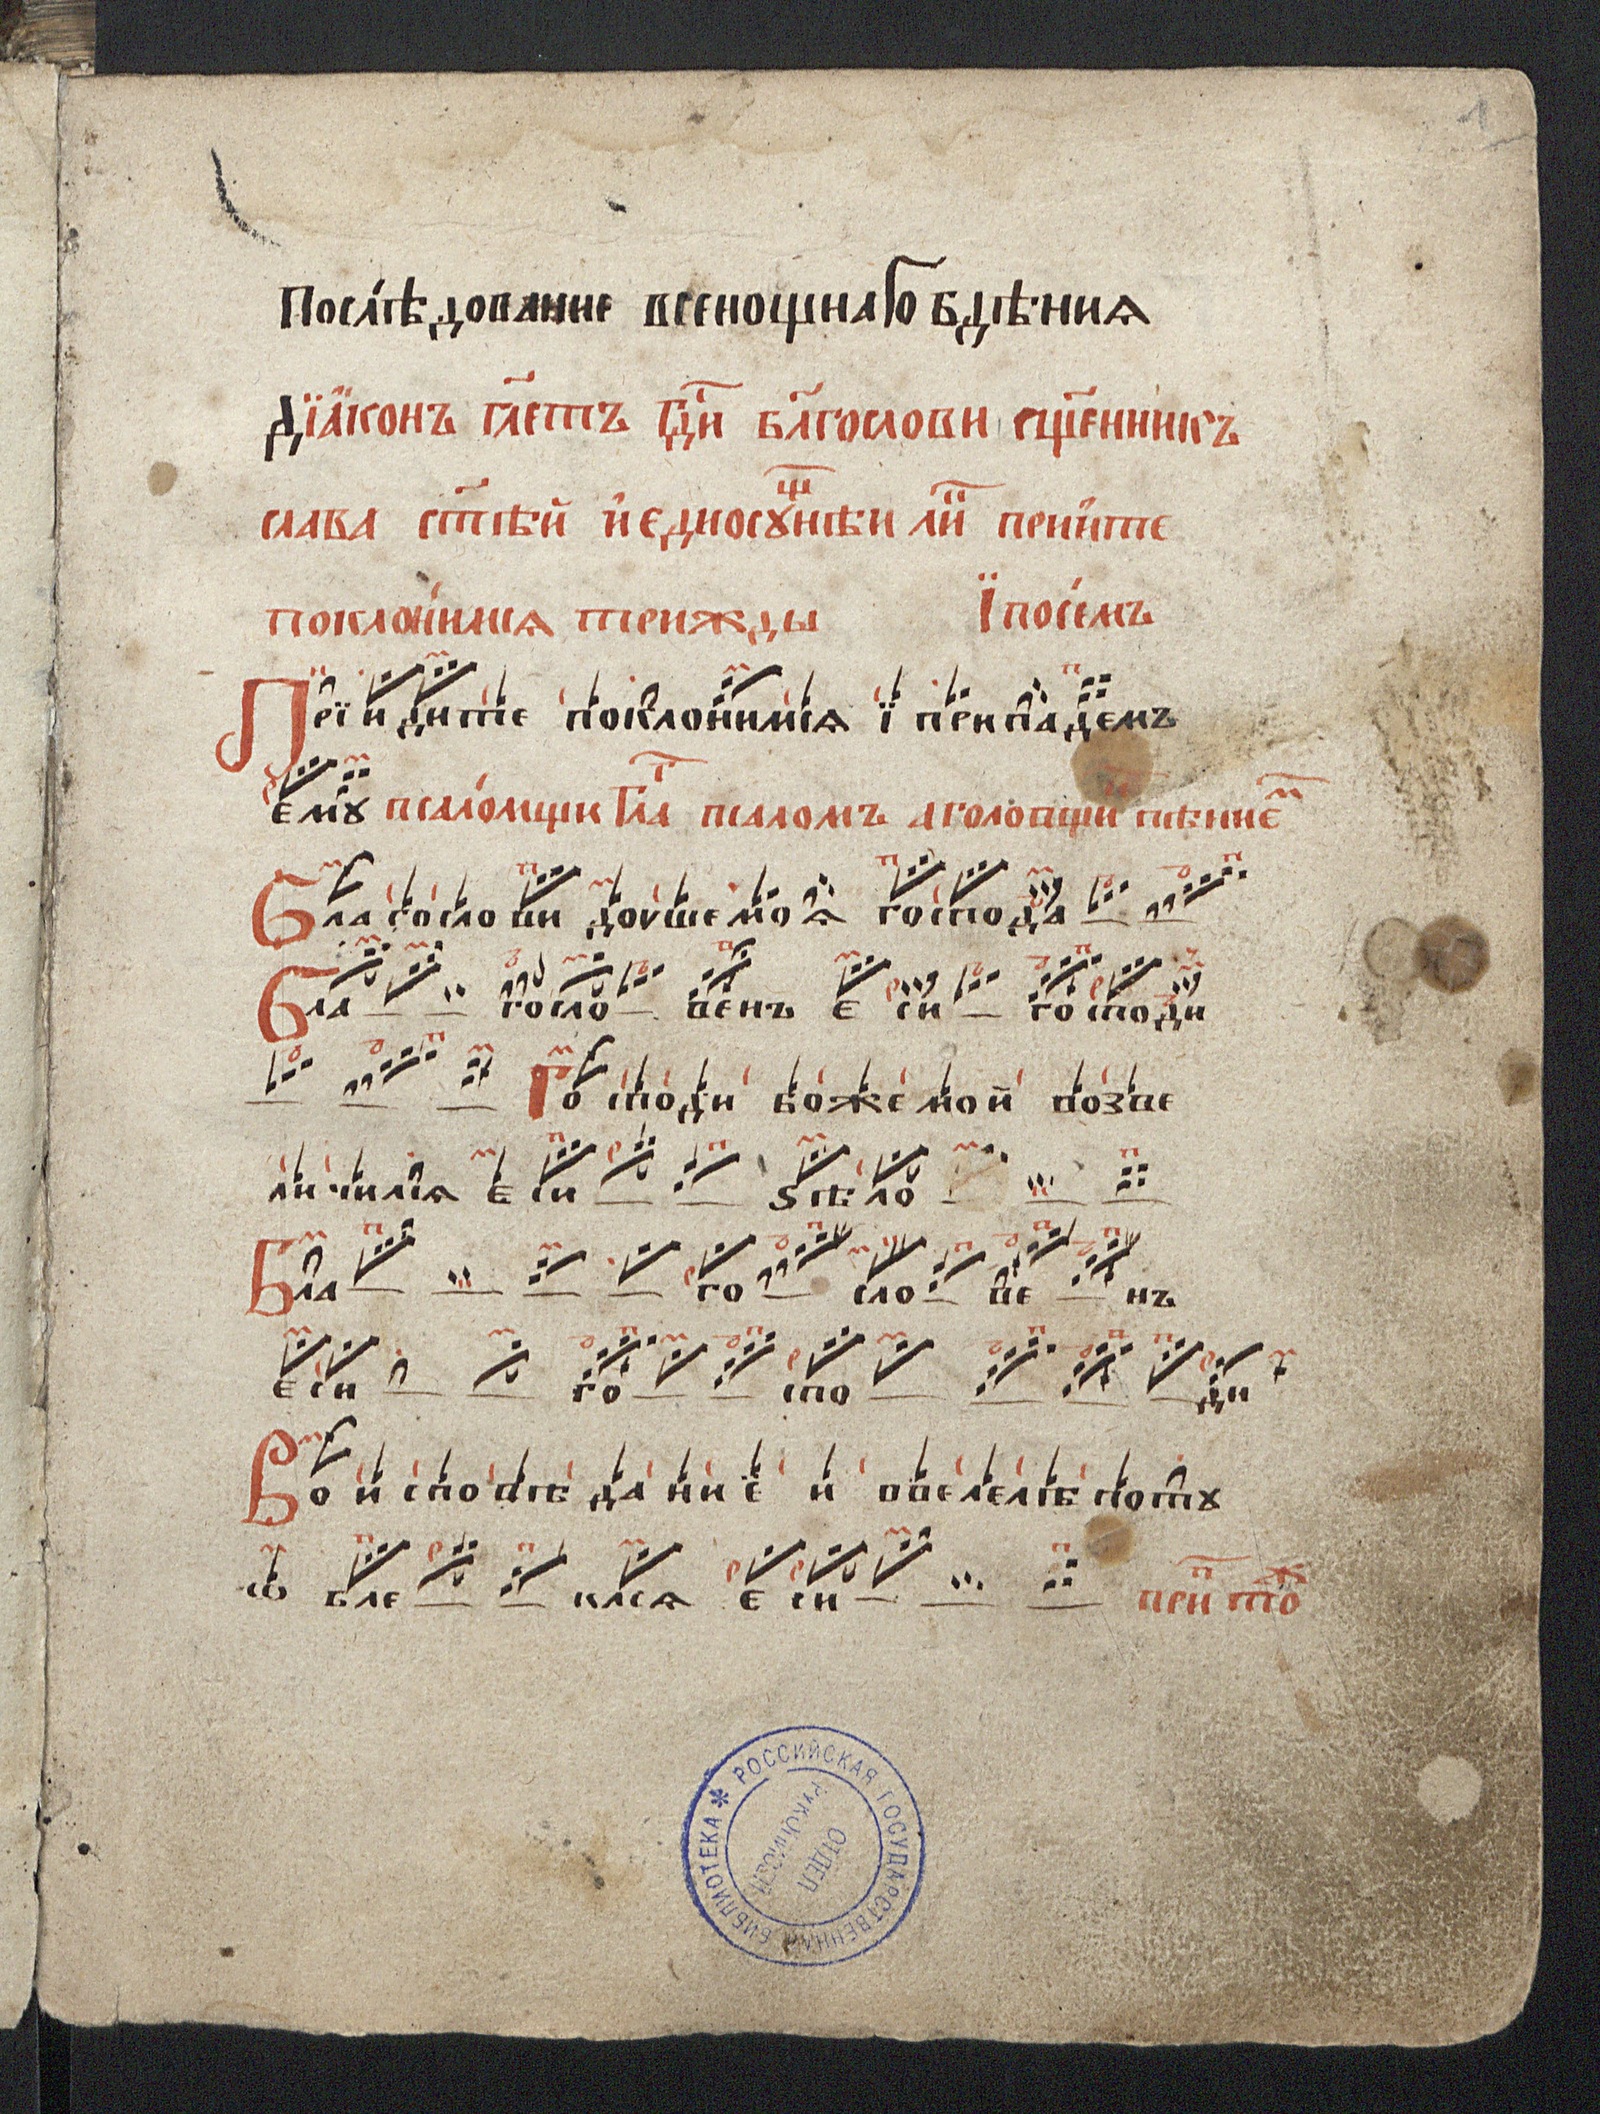 1
Послѣдование всенощнаго бдѣния
Дїаконъ гл҃етъ гд҇и бл҃гослови сщ҃енникъ
слава ст҃ѣй и едиосꙋщнѣи приите
поклонимсѧ трижды ї посемъ
Прїидите поклонимсѧ ї припадемъ
емꙋ псаломщик гл҃а псаломъ а головщик пѣние
Благослови доуше моѧ господа
Благословенъ еси господи
Господи боже мой возве
личилсѧ еси ѕѣло
Благословенъ
еси господи
Во исповѣданиїе и ввелелѣпотꙋ
ѡблеклсѧ еси при то
РОССИЙСКАЯ ГОСУДАРСТВЕННАЯ БИБЛИОТЕКА *
ОТДЕЛ
РУКОПИСЕЙ